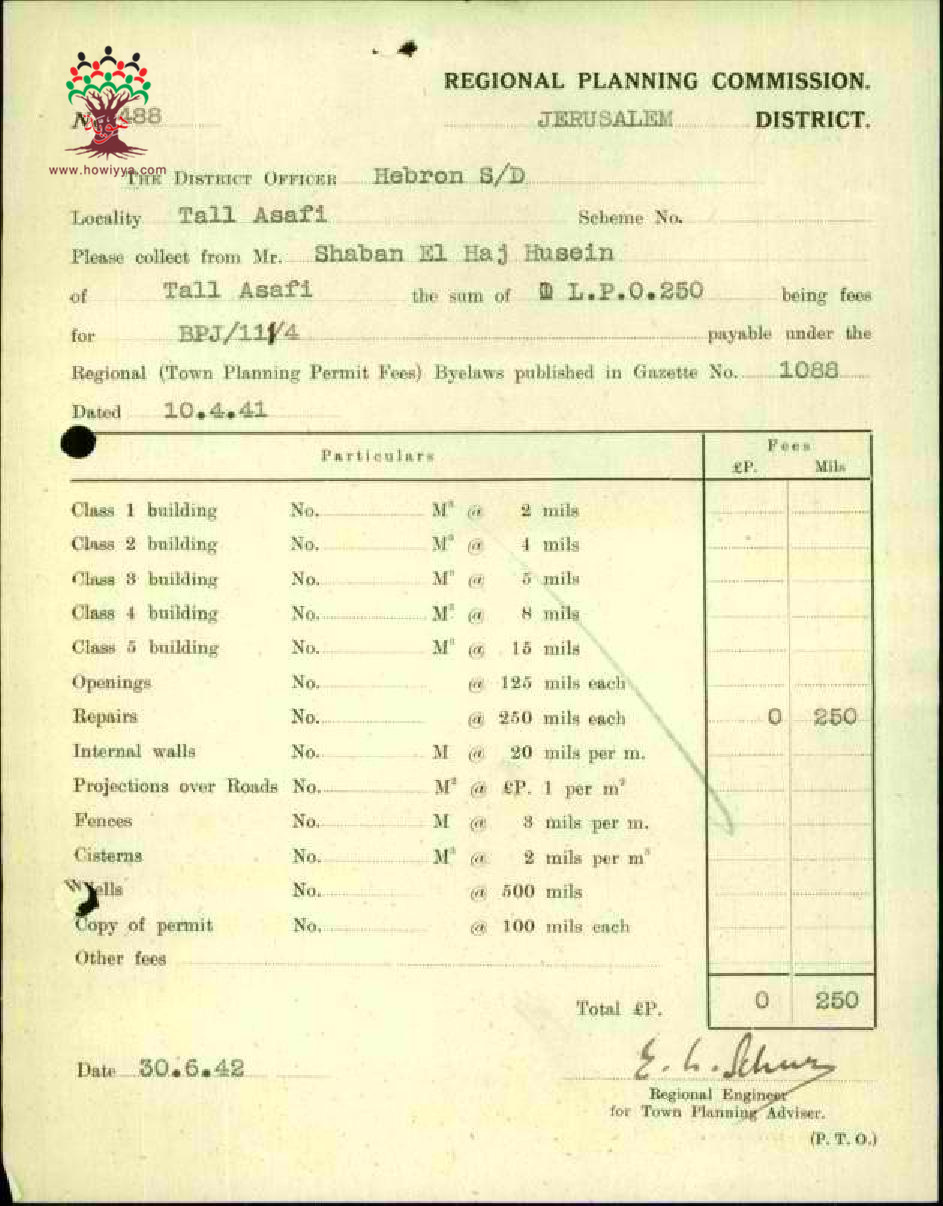 REGIONAL PLANNING COMMISSION.
488
JERUSALEM DISTRICT.
www.howiyya.com
THE DISTRICT OFFICER Hebron S/D
Locality Tall Asafi Scheme No.
Please collect from Mr. Shaban El Haj Husein
of Tall Asafi the sum of L.P.0.250 being fees
for BPJ/111/4 payable under the
Regional (Town Planning Permit Fees) Byelaws published in Gazette No. 1088
Dated 10.4.41
Particulars Fees
£P. Mils
Class 1 building No. M² @ 2 mils
Class 2 building No. M² @ 4 mils
Class 3 building No. M² @ 5 mils
Class 4 building No. M² @ 8 mils
Class 5 building No. M² @ 15 mils
Openings No. @ 125 mils each
Repairs No. @ 250 mils each 0 250
Internal walls No. M @ 20 mils per m.
Projections over Roads No. M² @ £P. 1 per m²
Fences No. M @ 3 mils per m.
Cisterns No. M³ @ 2 mils per m³
Wells No. @ 500 mils
Copy of permit No. @ 100 mils each
Other fees
Total £P. 0 250
Date 30.6.42
Regional Engineer
for Town Planning Adviser.
(P. T. O.)